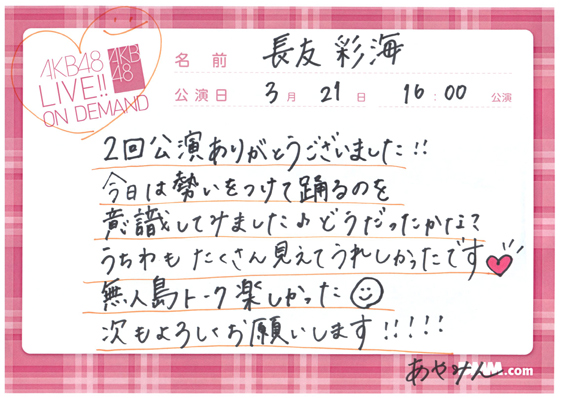 AKB48
LIVE!!
ON DEMAND
AKB
48
名前 長友彩海
公演日 3月21日 16:00 公演
2回公演ありがとうございました!!
今日は勢いをつけて踊るのを
意識してみました♪どうだったかな?
うちわもたくさん見えてうれしかったです
無人島トーク楽しかった
次もよろしくお願いします!!!!!
あやみん
.com